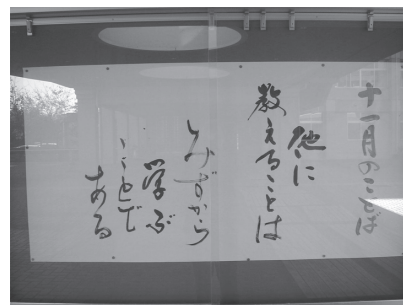 十一月のことば
他に
教えることは
みずから
学ぶ
ことで
ある